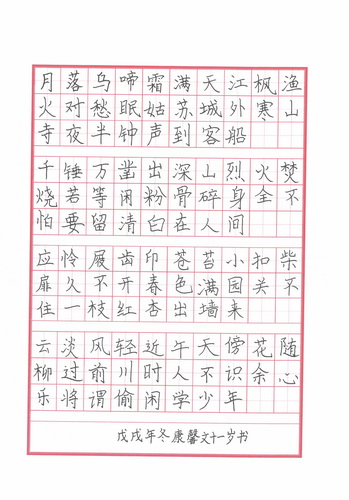 月落乌啼霜满天江枫渔
火对愁眠姑苏城外寒山
寺夜半钟声到客船
千锤万凿出深山烈火焚
烧若等闲粉骨碎身全不
怕要留清白在人间
应怜屐齿印苍苔小扣柴
扉久不开春色满园关不
住一枝红杏出墙来
云淡风轻近午天傍花随
柳过前川时人不识余心
乐将谓偷闲学少年
戊戌年冬康馨文十一岁书